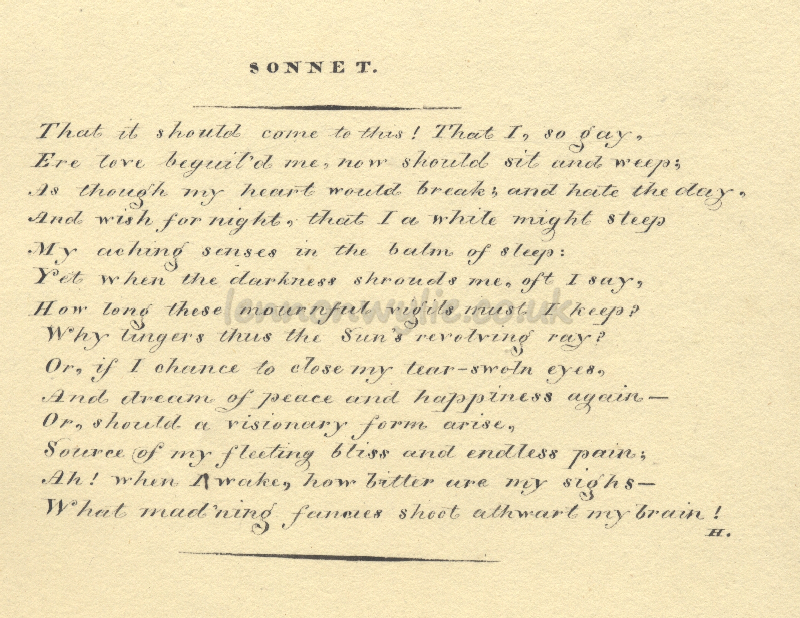 SONNET.
That it should come to this! That I, so gay,
Ere love beguil'd me, now should sit and weep;
As though my heart would break; and hate the day,
And wish for night, that I a while might steep
My aching senses in the balm of sleep:
Yet when the darkness shrouds me, oft I say,
How long these mournful vigils must I keep?
lennonwylie.co.uk
Why lingers thus the Sun's revolving ray?
Or, if I chance to close my tear-swoln eyes,
And dream of peace and happiness again—
Or, should a visionary form arise,
Source of my fleeting bliss and endless pain;
Ah! when I wake, how bitter are my sighs—
What mad'ning fancies shoot athwart my brain!
H.